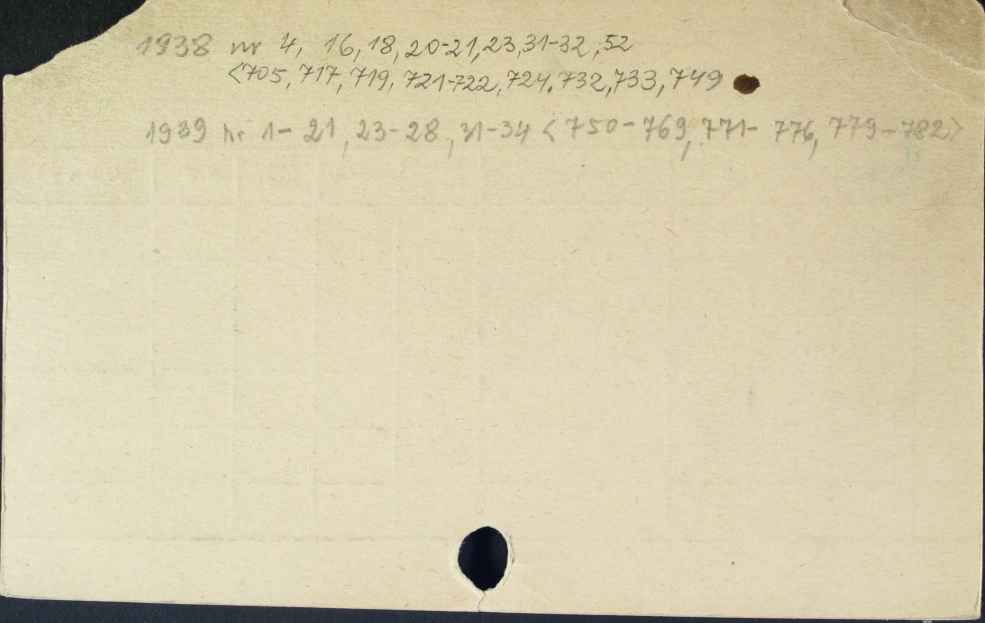 1938 nr 4, 16, 18, 20-21, 23, 31-32, 52
<705, 717, 719, 721-722, 724, 732, 733, 749
1939 nr 1-21, 23-28, 31-34 <750-769, 771-776, 779-782>